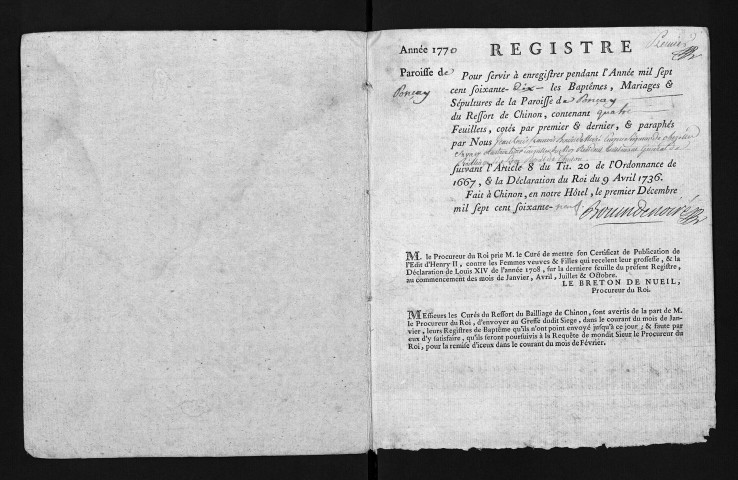 Premier
Année 1770 REGISTRE
Paroisse de
Ponçay
Pour servir à enregistrer pendant l'Année mil sept
cent soixante-dix les Baptêmes, Mariages &
Sépultures de la Paroisse de Ponçay
du Ressort de Chinon, contenant quatre
Feuillets, cotés par premier & dernier, & paraphés
par Nous Jean Louis
suivant l'Article 8 du Tit. 20 de l'Ordonnance de
1667, & la Déclaration du Roi du 9 Avril 1736.
Fait à Chinon, en notre Hôtel, le premier Décembre
mil sept cent soixante-neuf.
M. le Procureur du Roi prie M. le Curé de mettre son Certificat de Publication de
l'Edit d'Henry II, contre les Femmes veuves & Filles qui recelent leur grossesse, & la
Déclaration de Louis XIV de l'année 1708, sur la derniere feuille du présent Registre,
au commencement des mois de Janvier, Avril, Juillet & Octobre.
LE BRETON DE NUEIL,
Procureur du Roi.
Messieurs les Curés du Ressort du Bailliage de Chinon, sont avertis de la part de M.
le Procureur du Roi, d'envoyer au Greffe dudit Siege, dans le courant du mois de Jan-
vier, leurs Registres de Baptême qu'ils n'ont point envoyé jusqu'à ce jour; & faute par
eux d'y satisfaire, qu'ils seront poursuivis à la Requête de mondit Sieur le Procureur du
Roi, pour la remise d'iceux dans le courant du mois de Février.